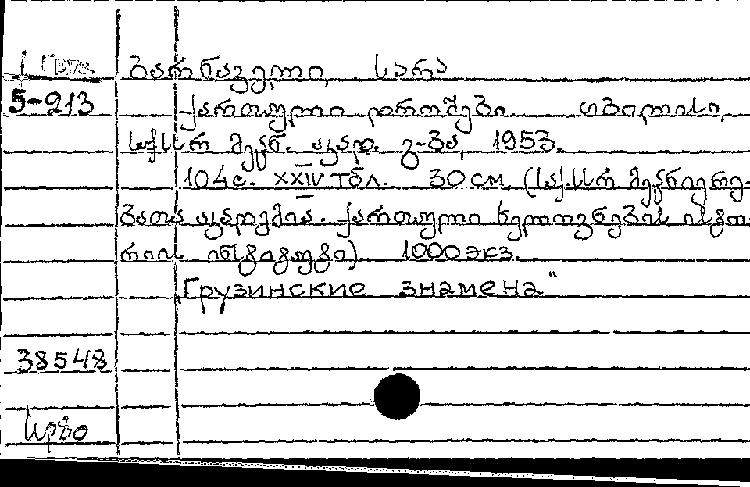 ბარნაველი, სარა
5-213
ქართული დროშები. თბილისი,
საქ.სსრ მეცნ. აკად. გ-ბა, 1953.
104с. XXIV табл. 30 см. (საქ.სსრ მეცნიერე-
ბათა აკადემია. ქართული ხელოვნების ისტო-
რიის ინსტიტუტი). 1000 экз.
„Грузинские знамена"
38548